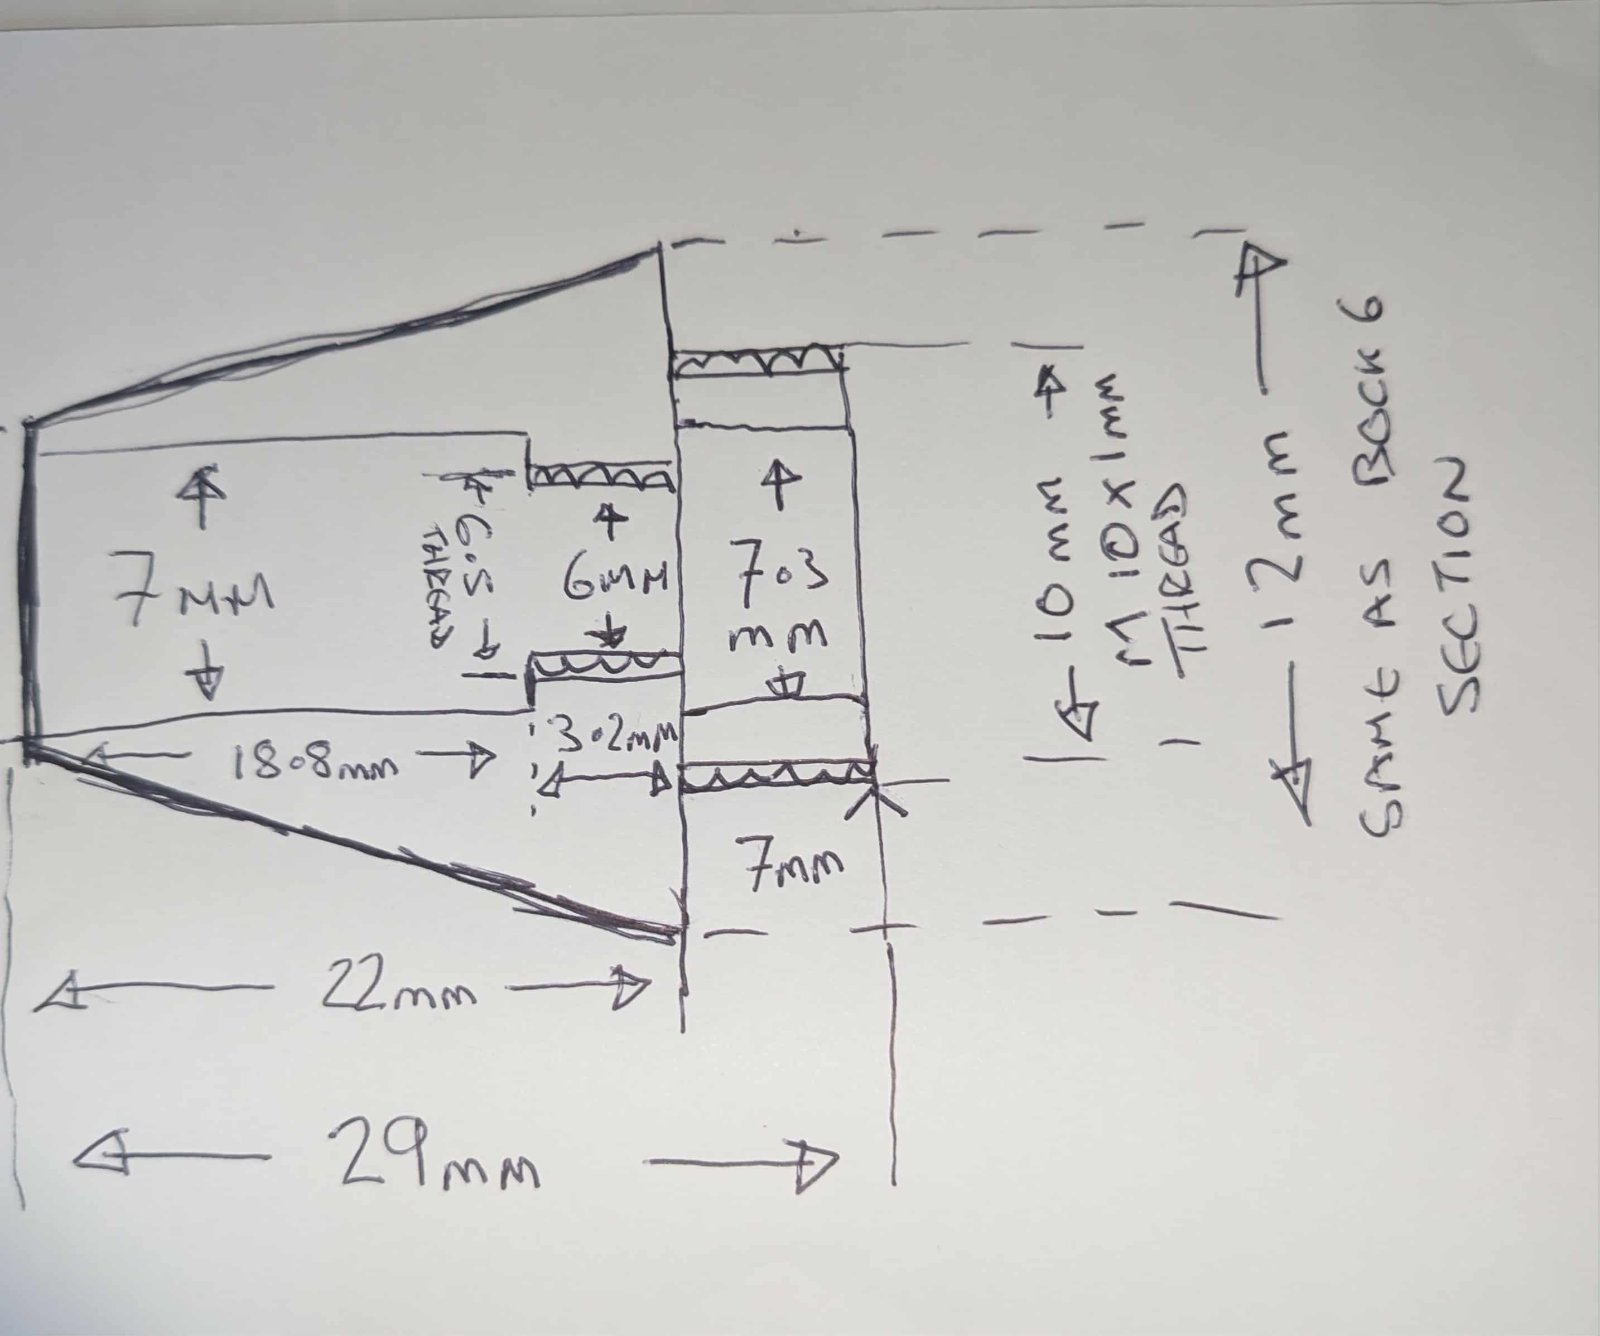 7mm
6.5
THREAD
6mm
7.3
mm
18.8mm
3.2mm
7mm
22mm
29mm
10mm
M10x1mm
THREAD
12mm
SAME AS BOCK 6
SECTION